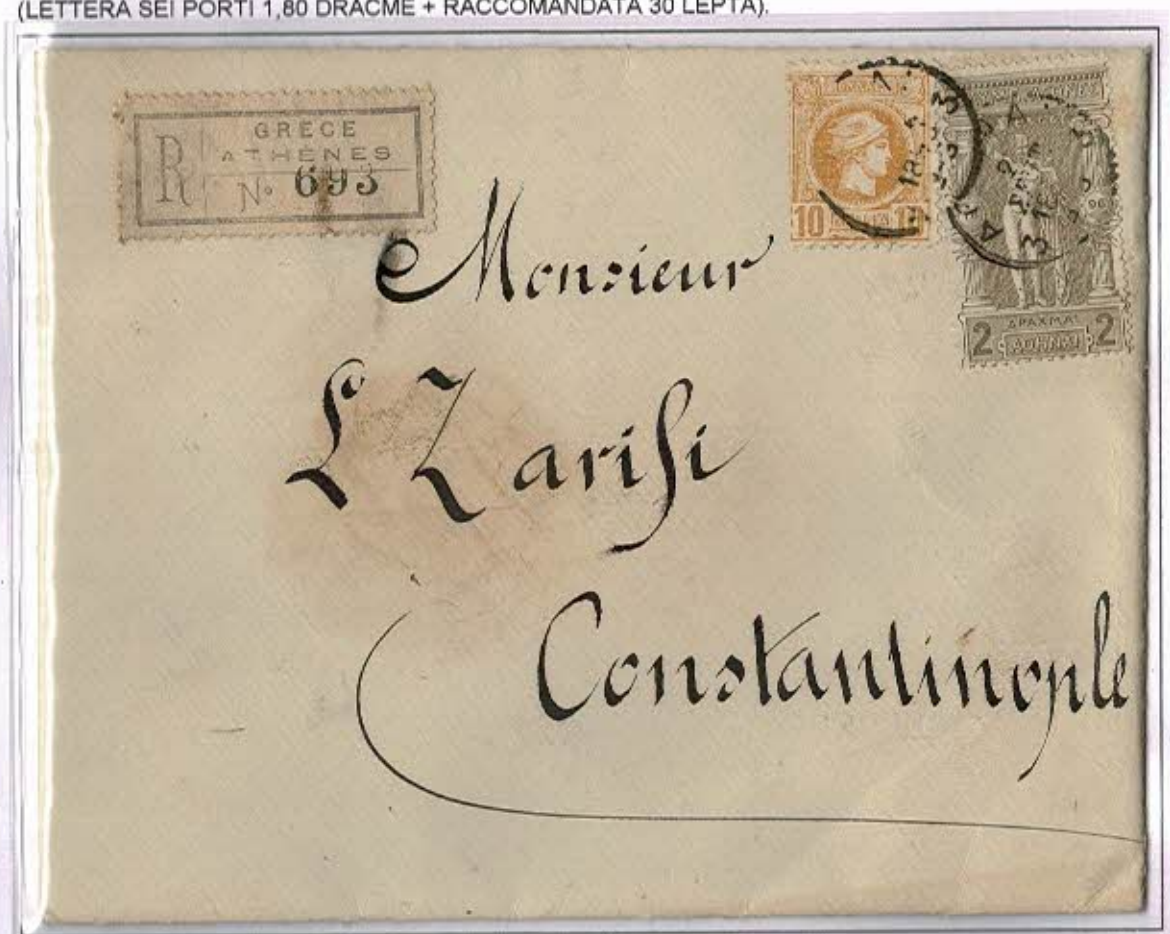 (LETTERA SEI PORTI 1,80 DRACME + RACCOMANDATA 30 LEPTA).
R
GRÈCE
ATHÈNES
No 693
10
2 ΔΡΑΧΜΑΙ 2
Monsieur
L Zarifi
Constantinople